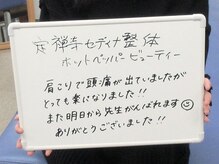 禅寺セディナ整体
ホットペッパービューティー
肩こりで頭痛が出ていましたが
とっても楽になりました!!
また明日から先生がんばれます☺
ありがとうございました!!